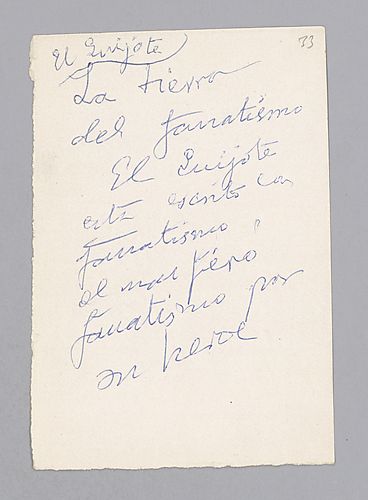 El Quijote
33
La tierra
del fanatismo
El Quijote
está escrito con
fanatismo,
el mas fiero
fanatismo por
su heroe